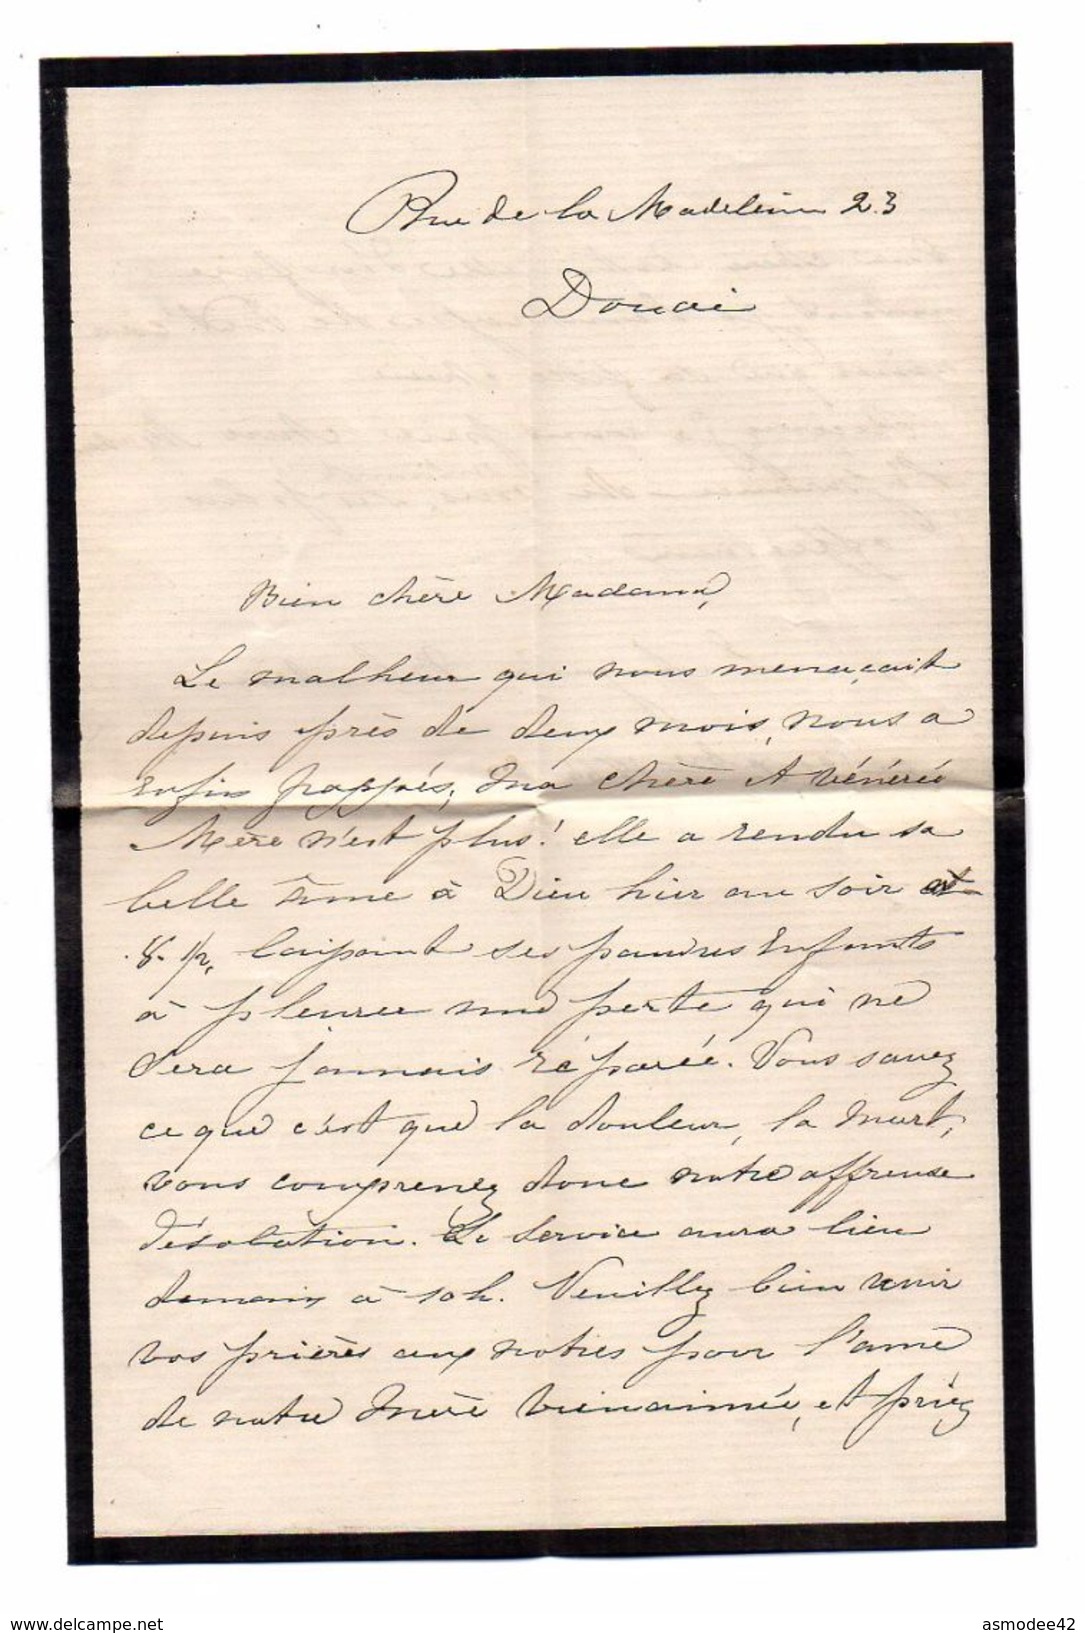 Rue de la Madeleine 23
Douai
Bien chère Madame,
Le malheur qui nous menaçait
depuis près de deux mois, nous a
enfin frappés, ma chère et vénérée
Mère n'est plus! elle a rendu sa
belle âme à Dieu hier au soir
8. 1/2, laissant ses pauvres Enfants
à pleurer une perte qui ne
sera jamais réparée. Vous savez
ce que c'est que la douleur, la mort,
vous comprenez donc notre affreuse
désolation. Le service aura lieu
demain à 10 h. Veuillez bien unir
vos prières aux notres pour l'ame
de notre Mère bienaimée, et priez
delcampe.net
asmodee42